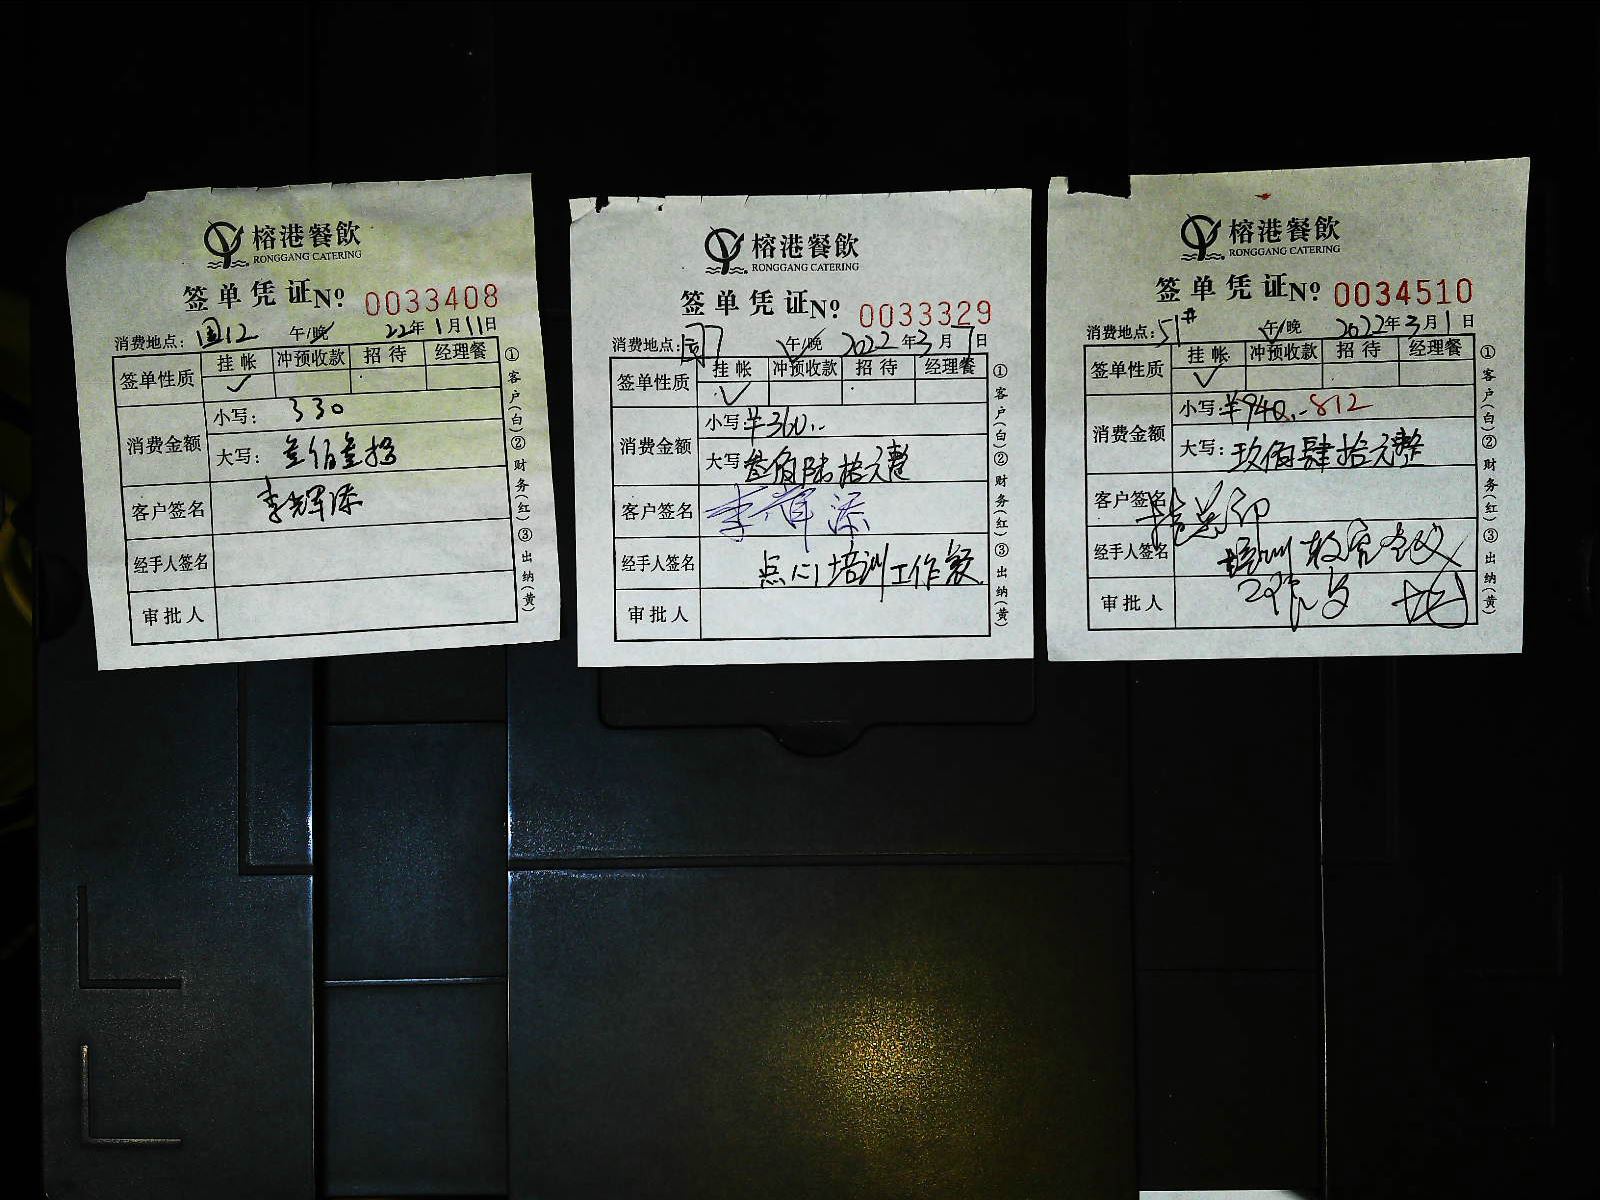 榕港餐飲
RONGGANG CATERING
签单凭证 Nº 0033408
消费地点: 园12 午/晚 22年1月11日
签单性质 挂帐 冲预收款 招待 经理餐
✓
消费金额 小写: 330
大写: 叁佰叁拾
客户签名 李辉添
经手人签名
审批人
①客户(白)②财务(红)③出纳(黄)
榕港餐飲
RONGGANG CATERING
签单凭证 Nº 0033329
消费地点: 园7 午/晚 2022年3月7日
签单性质 挂帐 冲预收款 招待 经理餐
✓
消费金额 小写: ¥360.-
大写 叁佰陆拾元整
客户签名 李辉添
经手人签名 点心培训工作餐
审批人
①客户(白)②财务(红)③出纳(黄)
榕港餐飲
RONGGANG CATERING
签单凭证 Nº 0034510
消费地点: 51# 午/晚 2022年3月1日
签单性质 挂帐 冲预收款 招待 经理餐
✓
消费金额 小写: ¥940.- 812
大写: 玖佰肆拾元整
客户签名
经手人签名 培训
审批人
①客户(白)②财务(红)③出纳(黄)